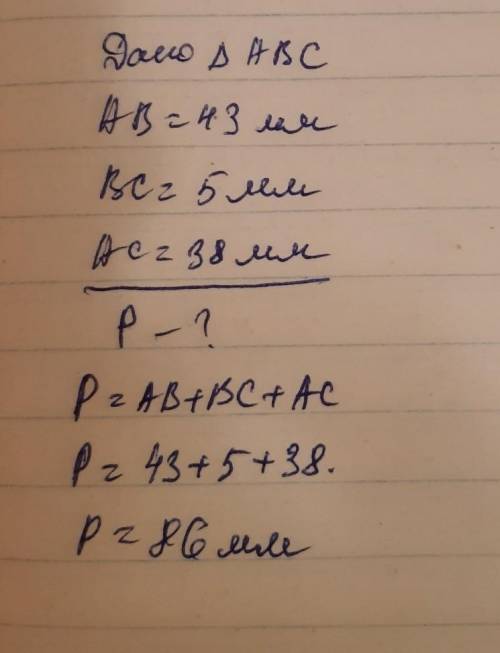 Дано Δ ABC
AB = 43 мм
BC = 5 мм
AC = 38 мм
P – ?
P = AB + BC + AC
P = 43 + 5 + 38.
P = 86 мм